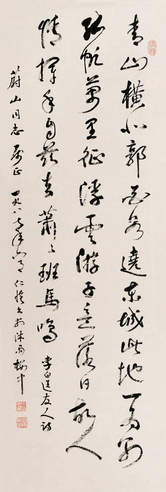 青山橫北郭白水遶東城此地一為別
孤萬里征浮雲游子意落日故人
情揮手自茲去蕭〻班馬鳴 李白送友人詩
蔚山同志屬正 一九八年 仁愷 沐雨樓中